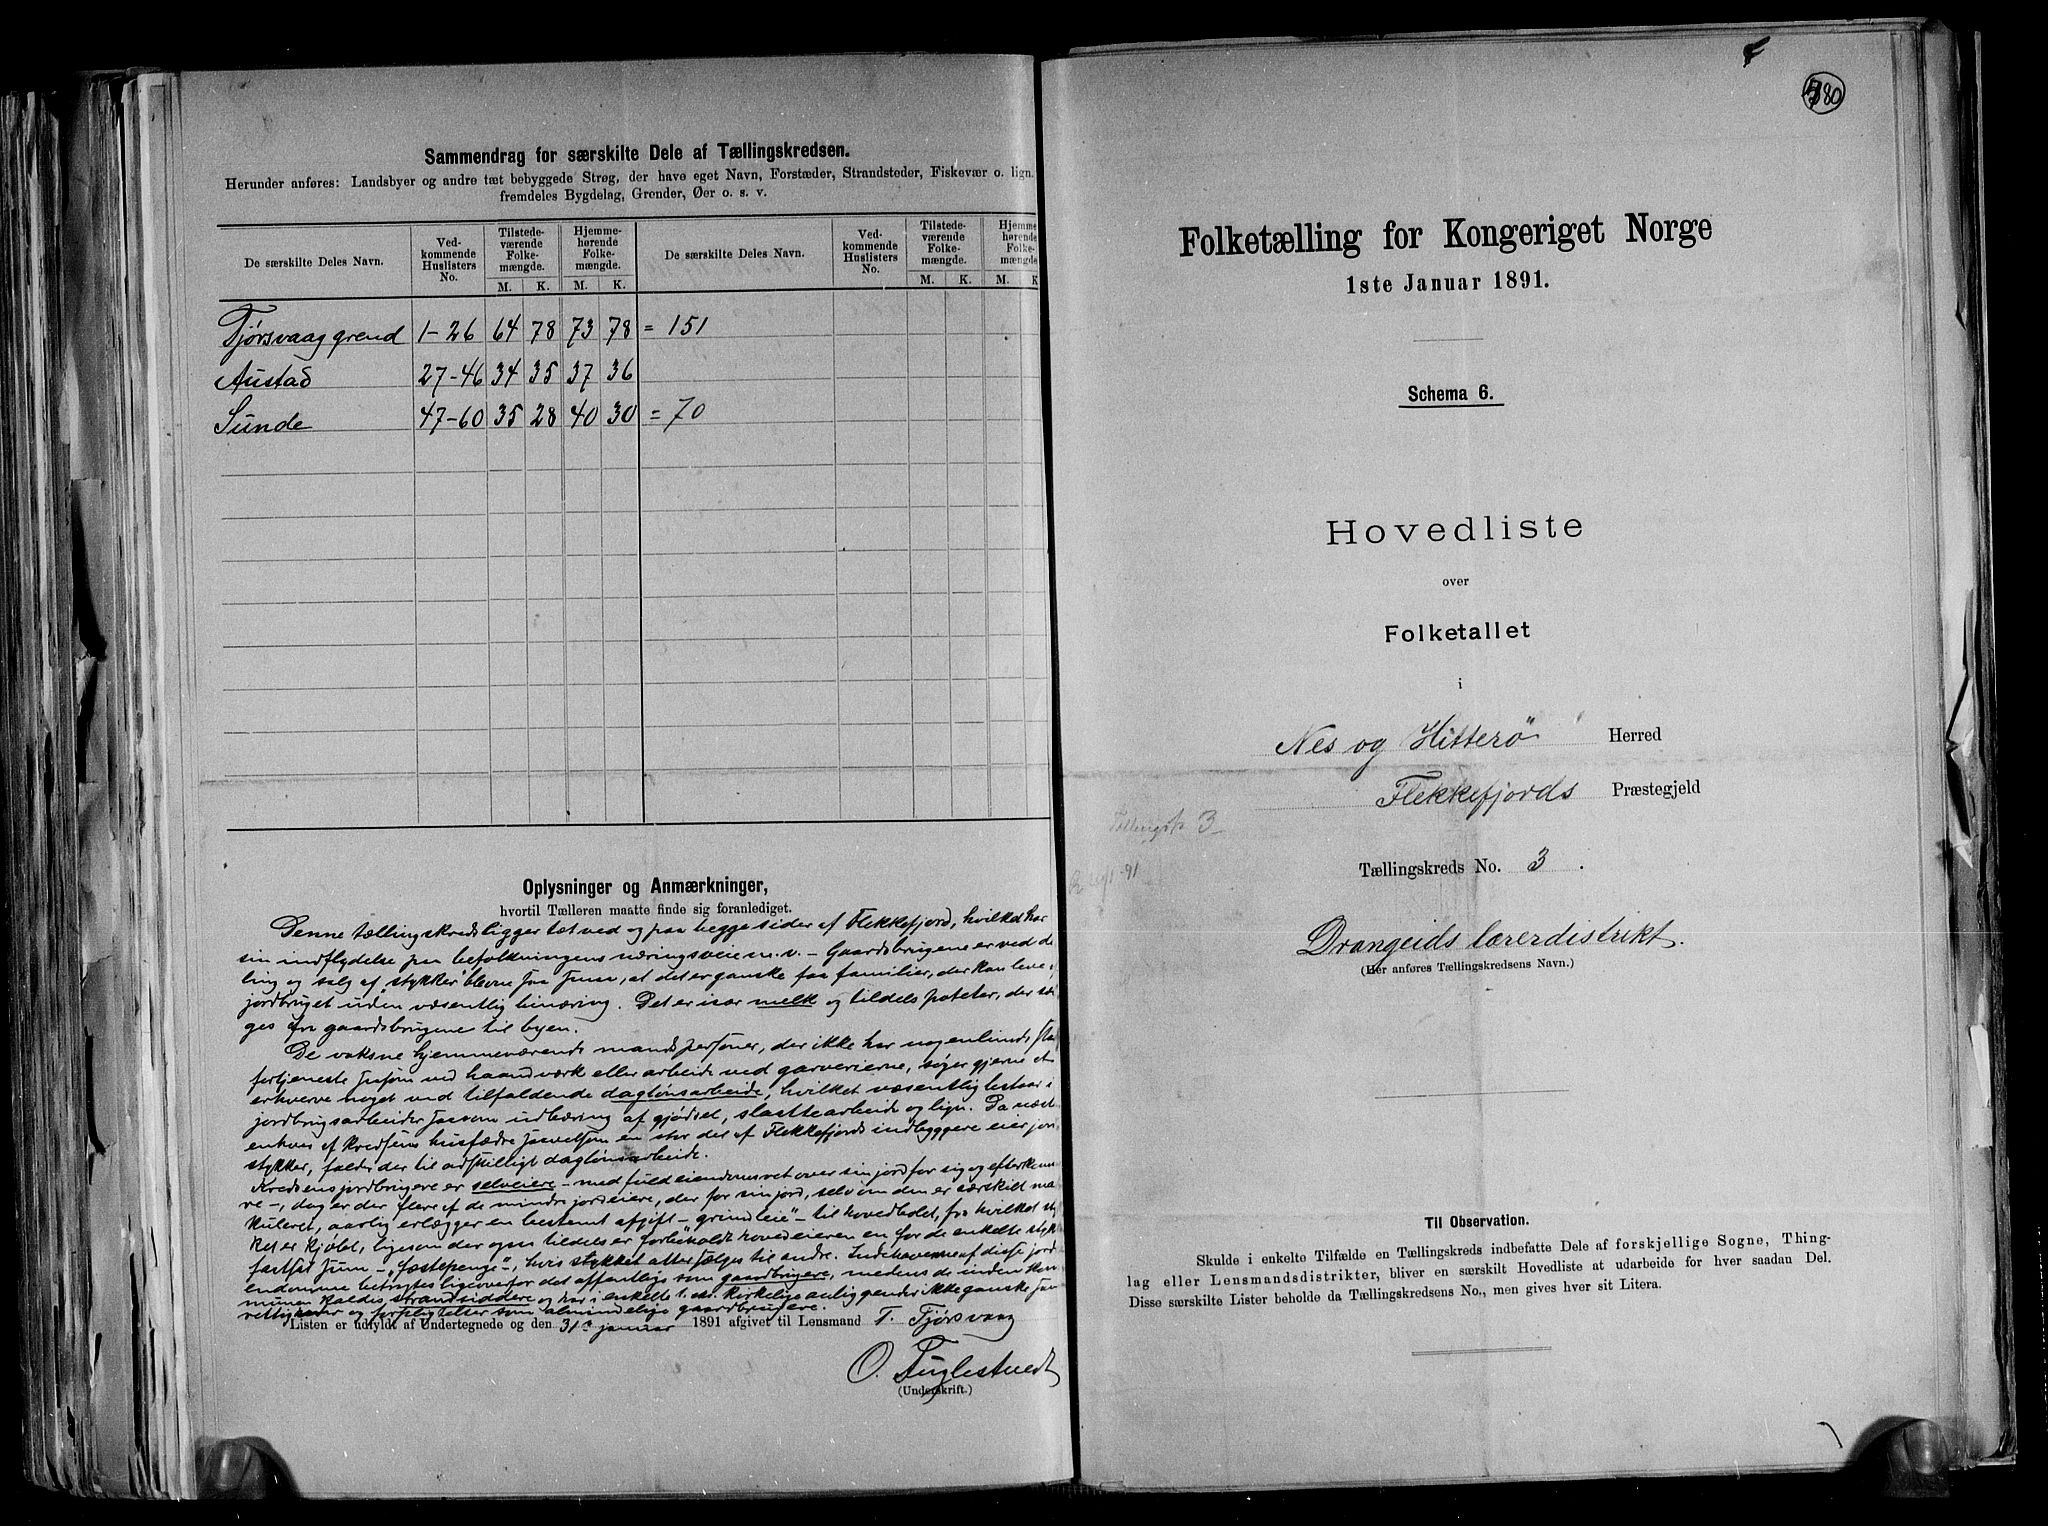 Sammendrag for særskilte Dele af Tællingskredsen.
Herunder anføres: Landsbyer og andre tæt bebyggede Strøg, der have eget Navn, Forstæder, Strandsteder, Fiskevær o. lign.
fremdeles Bygdelag, Grender, Øer o. s. v.
De særskilte Deles Navn. Ved-kommende Huslisters No. Tilstede-værende Folke-mængde. Hjemme-hørende Folke-mængde. De særskilte Deles Navn. Ved-kommende Huslisters No. Tilstede-værende Folke-mængde. Hjemme-hørende Folke-mængde
M. K. M. K. M. K. M. K
Tjørsvaag grend 1-26 64 78 73 78 = 151
Austad 27-46 34 35 37 36
Sunde 47-60 35 28 40 30 = 70
Oplysninger og Anmærkninger,
hvortil Tælleren maatte finde sig foranlediget.
Denne tællingskreds ligger tæt ved og paa begge sider af Flekkefjord, hvilket har
sin indflydelse paa befolkningens næringsveie m. v. – Gaardsbrugene er ved de
ling og salg af "stykker" blevne saa smaa, at det er ganske faa familier, der kan leve af
jordbruget uden væsentlig binæring. Det er især melk og tildels poteter, der sæl
ges fra gaardsbrugene til byen.
De voksne hjemmeværende mandspersoner, der ikke har nogenlunde
fortjeneste saasom ved haandværk eller arbeide ved garverierne, søger gjerne at
erhverve noget ved tilfældende daglønsarbeide, hvilket væsentlig bestaar i
jordbrugsarbeider saasom udbæring af gjødsel, slaattearbeide og lign. Da næst
enhver af kredsens husfædre saavelsom en stor del af Flekkefjords indbyggere eier jord
stykker, falder der til adskilligt daglønsarbeide.
Kredsens jordbrugere er selveiere – med fuld eiendomsret over sin jord for sig og efterkom
re –, dog er der flere af de mindre jordeiere, der for sin jord, selv om den er særskilt ma
kuleret, aarlig erlægger en bestemt afgift – "grundleie" – til hovedbølet, fra hvilket styk
ket er kjøbt, ligesom der ogsaa tildels er forbeholdt hovedeieren en for de enkelte styk
fastsat sum – "fæstepenge" –, hvis stykket atter sælges til andre. Indehaverne af disse jord
eiendomme betragtes ligeoverfor det offentlige som gaardbrugere, medens de inden kom
munen kaldes strandsiddere og har i enkelte t. ex. kirkelige anliggender ikke ganske samme
rettigheder og forpligtelser som almindelige gaardbrugere.
Listen er udfyldt af Undertegnede og den 31te januar 1891 afgivet til Lensmand T. Tjørsvaag
O. Fuglestvedt
(Underskrift.)
380
Folketælling for Kongeriget Norge
1ste Januar 1891.
Schema 6.
Hovedliste
over
Folketallet
i
Nes og Hitterö Herred
Flekkefjords Præstegjeld
3
Tællingskreds No. 3.
Drangeids lærerdistrikt.
(Her anføres Tællingskredsens Navn.)
Til Observation.
Skulde i enkelte Tilfælde en Tællingskreds indbefatte Dele af forskjellige Sogne, Thing-
lag eller Lensmandsdistrikter, bliver en særskilt Hovedliste at udarbeide for hver saadan Del.
Disse særskilte Lister beholde da Tællingskredsens No., men gives hver sit Litera.